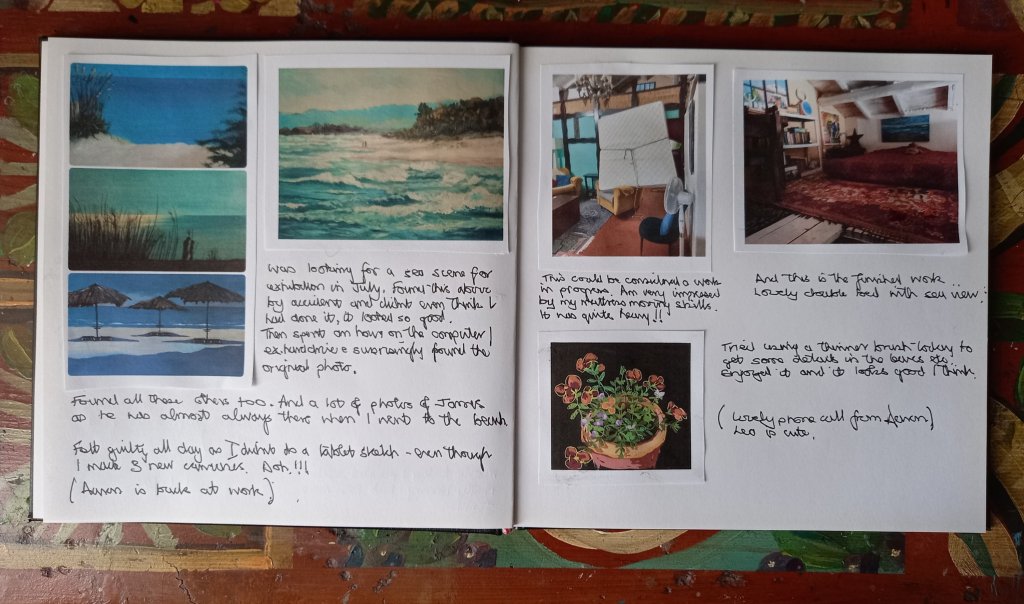 Was looking for a sea scene for
exhibition in July. Found this above
by accident and didnt even think I
had done it, it looked so good.
Then spent an hour on the computer /
ex.harddrive & surprisingly found the
original photo.
Found all these others too. And a lot of photos of
as he was almost always there when I went to the beach.
Felt guilty all day as I didnt do a tablet sketch - even though
I made 3 new canvases. Doh!!!
(Aaron is back at work)
This could be considered a work
in progress. Am very impressed
by my mattress moving skills.
It was quite heavy!!
And this is the finished work..
Lovely double bed with sea view!
Tried using a thinner brush today to
get some details in the leaves etc.
Enjoyed it and it looks good I think.
(Lovely phone call from Aaron)
Leo is cute.